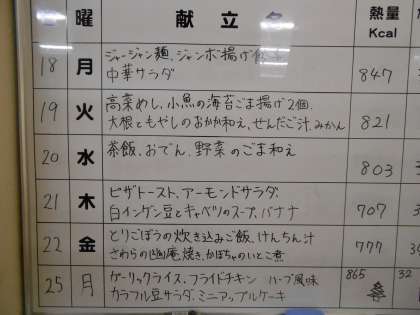 曜 献立名 熱量
Kcal
18 月 ジャージャン麺、ジャンボ揚げ
中華サラダ 847
19 火 高菜めし、小魚の海苔ごま揚げ2個、
大根ともやしのおかか和え、せんだご汁、みかん 821
20 水 茶飯、おでん、野菜のごま和え 803
21 木 ピザトースト、アーモンドサラダ、
白インゲン豆とキャベツのスープ、バナナ 707
22 金 とりごぼうの炊き込みご飯、けんちん汁
さわらの幽庵焼き、かぼちゃのいとこ煮 777
25 月 ガーリックライス、フライドチキン ハーブ風味 865 32
カラフル豆サラダ、ミニアップルケーキ